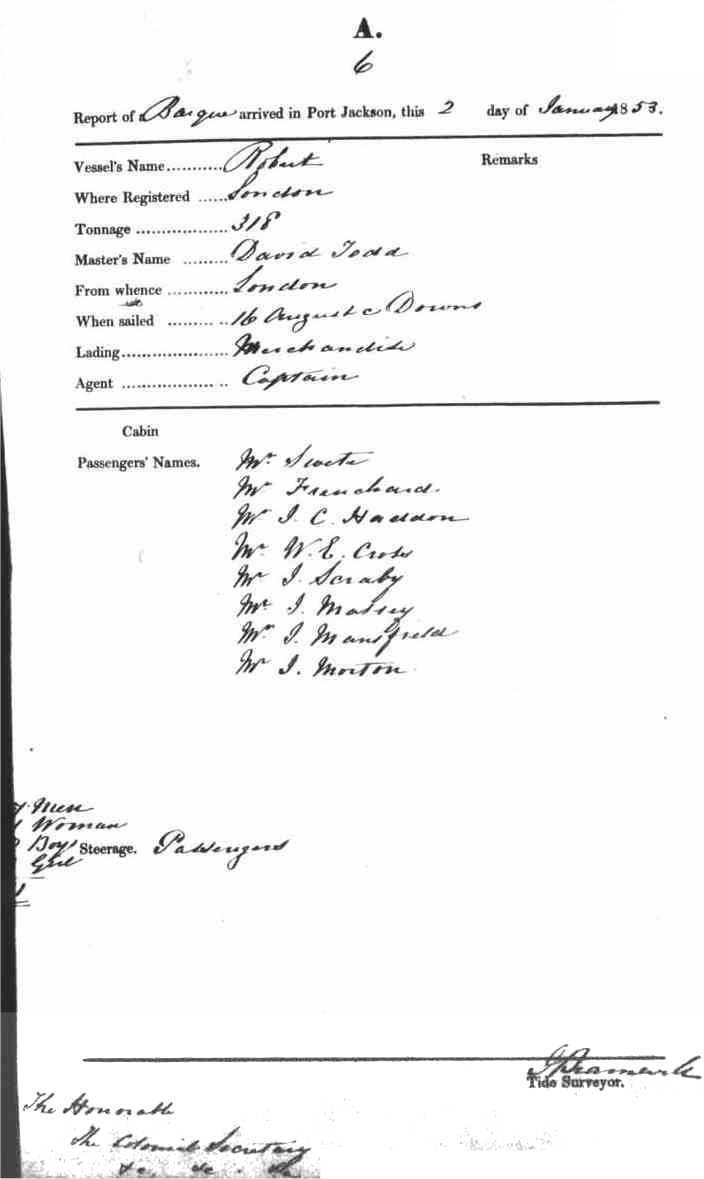 A.
6
Report of a Barque arrived in Port Jackson, this 2 day of January 1853.
Vessel's Name........... Robert Remarks
Where Registered ...... London
Tonnage .................. 318
Master's Name ......... David Todd
From whence ............ London
When sailed ........... 16 August Downs
Lading..................... Merchandise
Agent ..................... Captain
Cabin
Passengers' Names. Mr Swete
Mr Frenchard.
Mr J. C. Haddon
Mr. W. E. Cross
Mr J. Scraby
Mr. J. Massey
Mr. J. Mansfield
Mr J. Morton
Men
Woman
Boys Steerage. Passengers
Girl
Tide Surveyor.
The Honorable
The Colonial Secretary
&c. &c. &c.